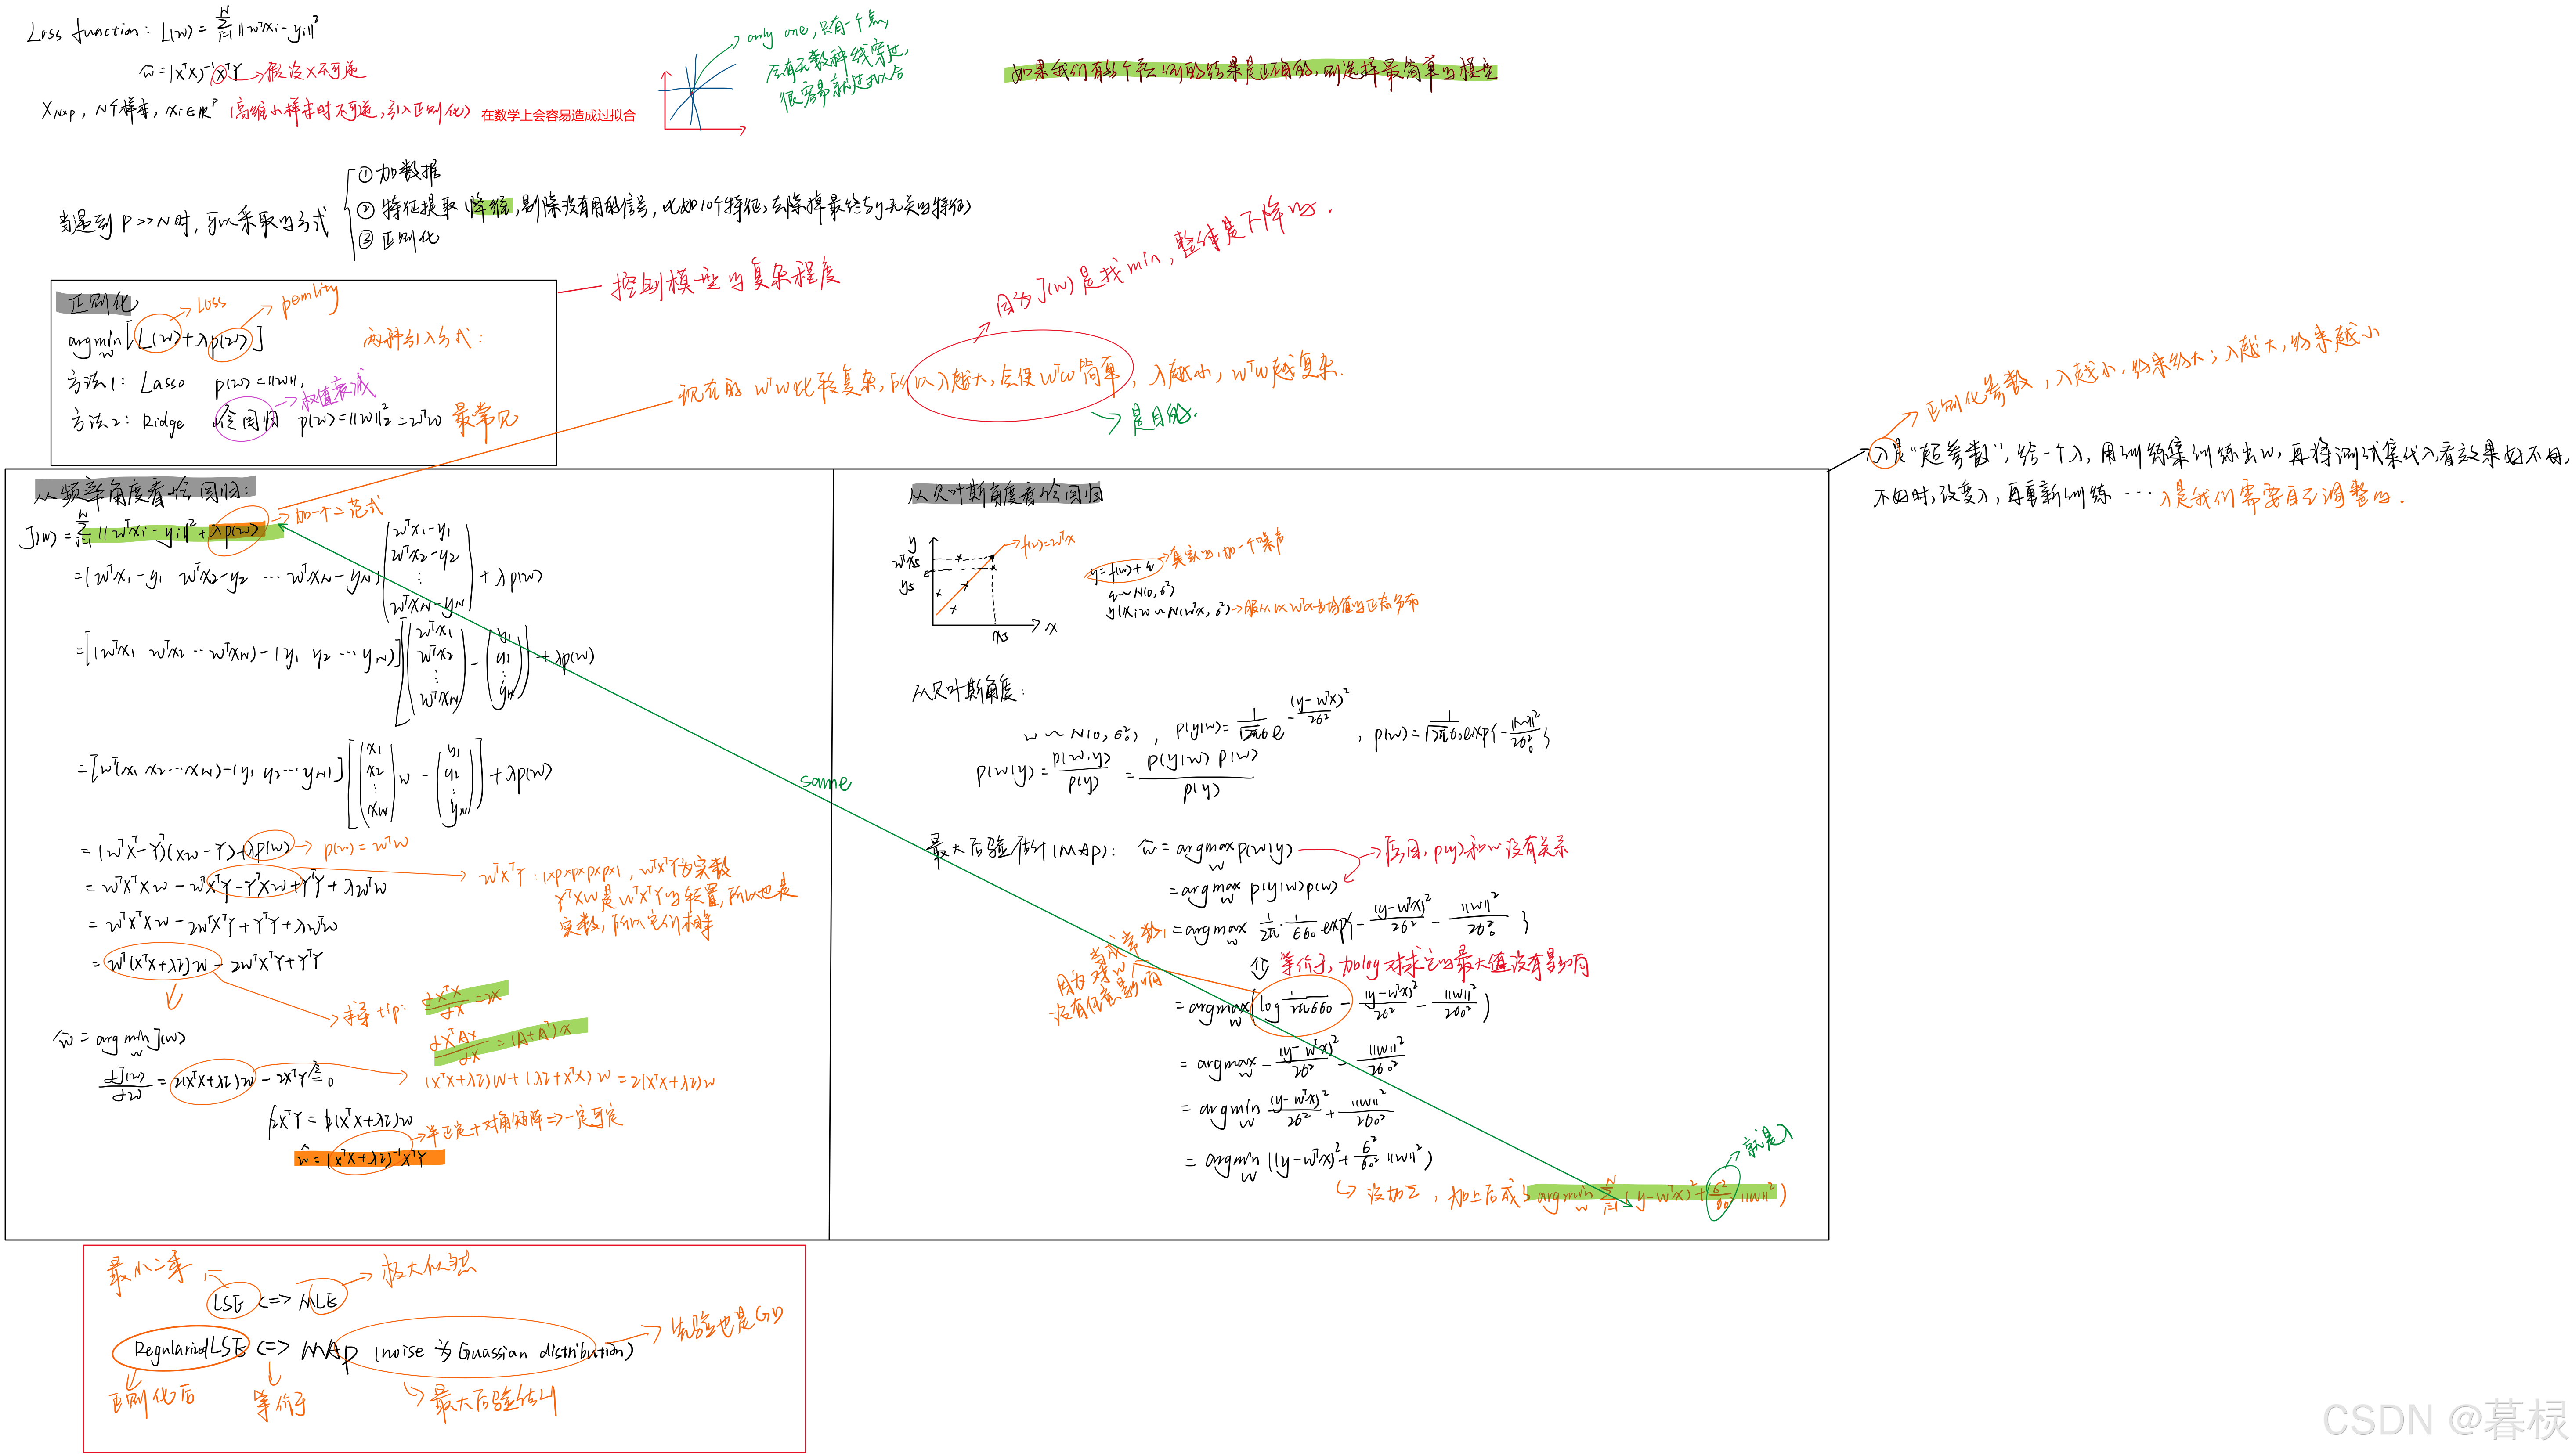 Loss function: L(w) = Σ_{i=1}^{N} ||wᵀxi - yi||²
ŵ = (XᵀX)⁻¹XᵀY → 假设X不可逆
X_{N×p}, N个样本, xi∈ℝᵖ (高维小样本时不可逆,引入正则化) 在数学上会容易造成过拟合
only one, 只有一个点,
会有无数种线穿过,
很容易就过拟合
如果我们有多个预测的结果是正确的,则选择最简单的模型
当遇到 P>>N时, 可以采取的方式
① 加数据
② 特征提取 (降维, 剔除没有用的信号, 比如10个特征, 去除掉最终与y无关的特征)
③ 正则化
控制模型的复杂程度
正则化
Loss
penlity
argmin_w [L(w)+λp(w)]
两种引入方式:
方法1: Lasso p(w)=||w||₁
权值衰减
方法2: Ridge 岭回归 p(w)=||w||₂²=wᵀw 最常见
因为J(w)是找min, 整体是下降的.
现在的wᵀw比较复杂, 所以λ越大, 会使wᵀw简单, λ越小, wᵀw越复杂.
是目的.
正则化参数, λ越小, 约束越大; λ越大, 约束越小
λ是"超参数", 给一个λ, 用训练集训练出w, 再将测试集代入看效果好不好,
不好时, 改变λ, 再重新训练 … λ是我们需要自己调整的.
从频率角度看岭回归:
J(w) = Σ_{i=1}^{N} ||wᵀxi - yi||² + λp(w) → 加一个二范式
= (wᵀx1-y1 wᵀx2-y2 … wᵀxN-yN) (wᵀx1-y1 wᵀx2-y2 ⋮ wᵀxN-yN) + λp(w)
= [(wᵀx1 wᵀx2 … wᵀxN)-(y1 y2 … yN)] [(wᵀx1 wᵀx2 ⋮ wᵀxN) - (y1 y1 ⋮ yN)] + λp(w)
= [wᵀ(x1 x2 … xN)-(y1 y2 … yN)] [(x1 x2 ⋮ xN) w - (y1 y2 ⋮ yN)] + λp(w)
= (wᵀXᵀ-Yᵀ)(Xw-Y)+λp(w) → p(w)=wᵀw
= wᵀXᵀXw - wᵀXᵀY - YᵀXw + YᵀY + λwᵀw
wᵀXᵀY: 1×p×p×p×1, wᵀXᵀY为实数
YᵀXw是wᵀXᵀY的转置, 所以也是
实数, 所以它们相等
= wᵀXᵀXw - 2wᵀXᵀY + YᵀY + λwᵀw
= wᵀ(XᵀX+λI)w - 2wᵀXᵀY + YᵀY
求导tip: dXᵀX/dX = 2X
dXᵀAX/dX = (A+Aᵀ)X
ŵ = argmin_w J(w)
dJ(w)/dw = 2(XᵀX+λI)w - 2XᵀY ≜ 0
(XᵀX+λI)w + (λI+XᵀX)w = 2(XᵀX+λI)w
2XᵀY = 2(XᵀX+λI)w
半正定+对角矩阵 ⇒ 一定可逆
ŵ = (XᵀX+λI)⁻¹XᵀY
same
从贝叶斯角度看岭回归
y
wᵀxs
ys
xs
x
f(w)=wᵀx
y = f(w)+ε → 真实的, 加一个噪声
ε~N(0,σ²)
y|x;w ~ N(wᵀx, σ²) → 服从以wᵀx为均值的正态分布
从贝叶斯角度:
w ~ N(0,σ0²), p(y|w) = 1/(√2π σ) e^{-(y-wᵀx)²/2σ²}, p(w) = 1/(√2π σ0) exp{-||w||²/2σ0²}
p(w|y) = p(w,y)/p(y) = p(y|w)p(w)/p(y)
最大后验估计(MAP): ŵ = argmax_w p(w|y) → 后因, p(y)和w没有关系
= argmax_w p(y|w)p(w)
= argmax_w 1/2π · 1/σσ0 exp{-(y-wᵀx)²/2σ² - ||w||²/2σ0²}
⇕ 等价于, 加log对求它的最大值没有影响
当成常数,
因为对w
没有任意影响
= argmax_w (log 1/2πσσ0 - (y-wᵀx)²/2σ² - ||w||²/2σ0²)
= argmax_w -(y-wᵀx)²/2σ² - ||w||²/2σ0²
= argmin_w (y-wᵀx)²/2σ² + ||w||²/2σ0²
= argmin_w ((y-wᵀx)² + σ²/σ0² ||w||²)
就是λ
没加Σ, 加上后成了 argmin_w Σ_{i=1}^{N} (y-wᵀx)² + σ²/σ0 ||w||²)
最小二乘
极大似然
LSE <=> MLE
先验也是GD
RegularizedLSE <=> MAP (noise 为 Guassian distribution)
正则化后
等价于
最大后验估计
CSDN @暮棂